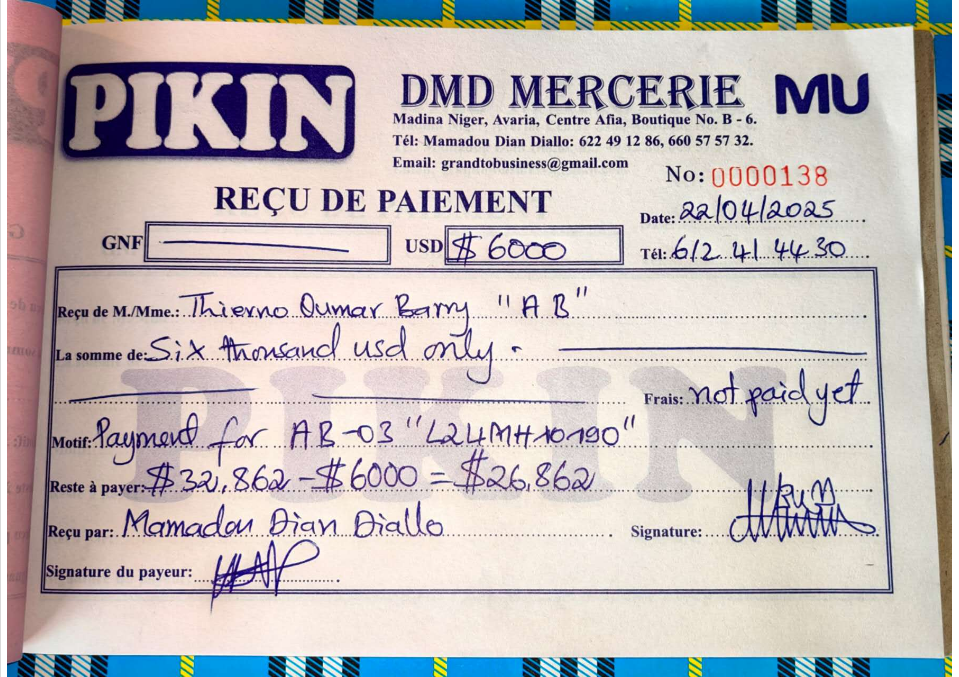 PIKIN
DMD MERCERIE
MU
Madina Niger, Avaria, Centre Afia, Boutique No. B - 6.
Tél: Mamadou Dian Diallo: 622 49 12 86, 660 57 57 32.
Email: grandtobusiness@gmail.com
No: 0000138
REÇU DE PAIEMENT
Date: 22/04/2025
GNF
USD $ 6000
Tél: 612 41 44 30
Reçu de M./Mme.: Thierno Oumar Barry "AB"
La somme de: Six thousand usd only.
Frais: not paid yet
PIKIN
Motif: Payment for AB-03 "L24MH10190"
Reste à payer: $32,862 - $6000 = $26,862
Reçu par: Mamadou Dian Diallo
Signature:
Signature du payeur: